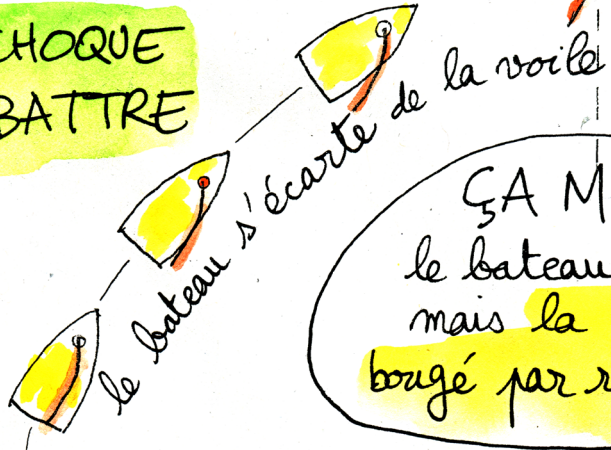 CHOQUE
BATTRE
le bateau s'écarte de la voile
ÇA M
le bateau
mais la
bougé par r